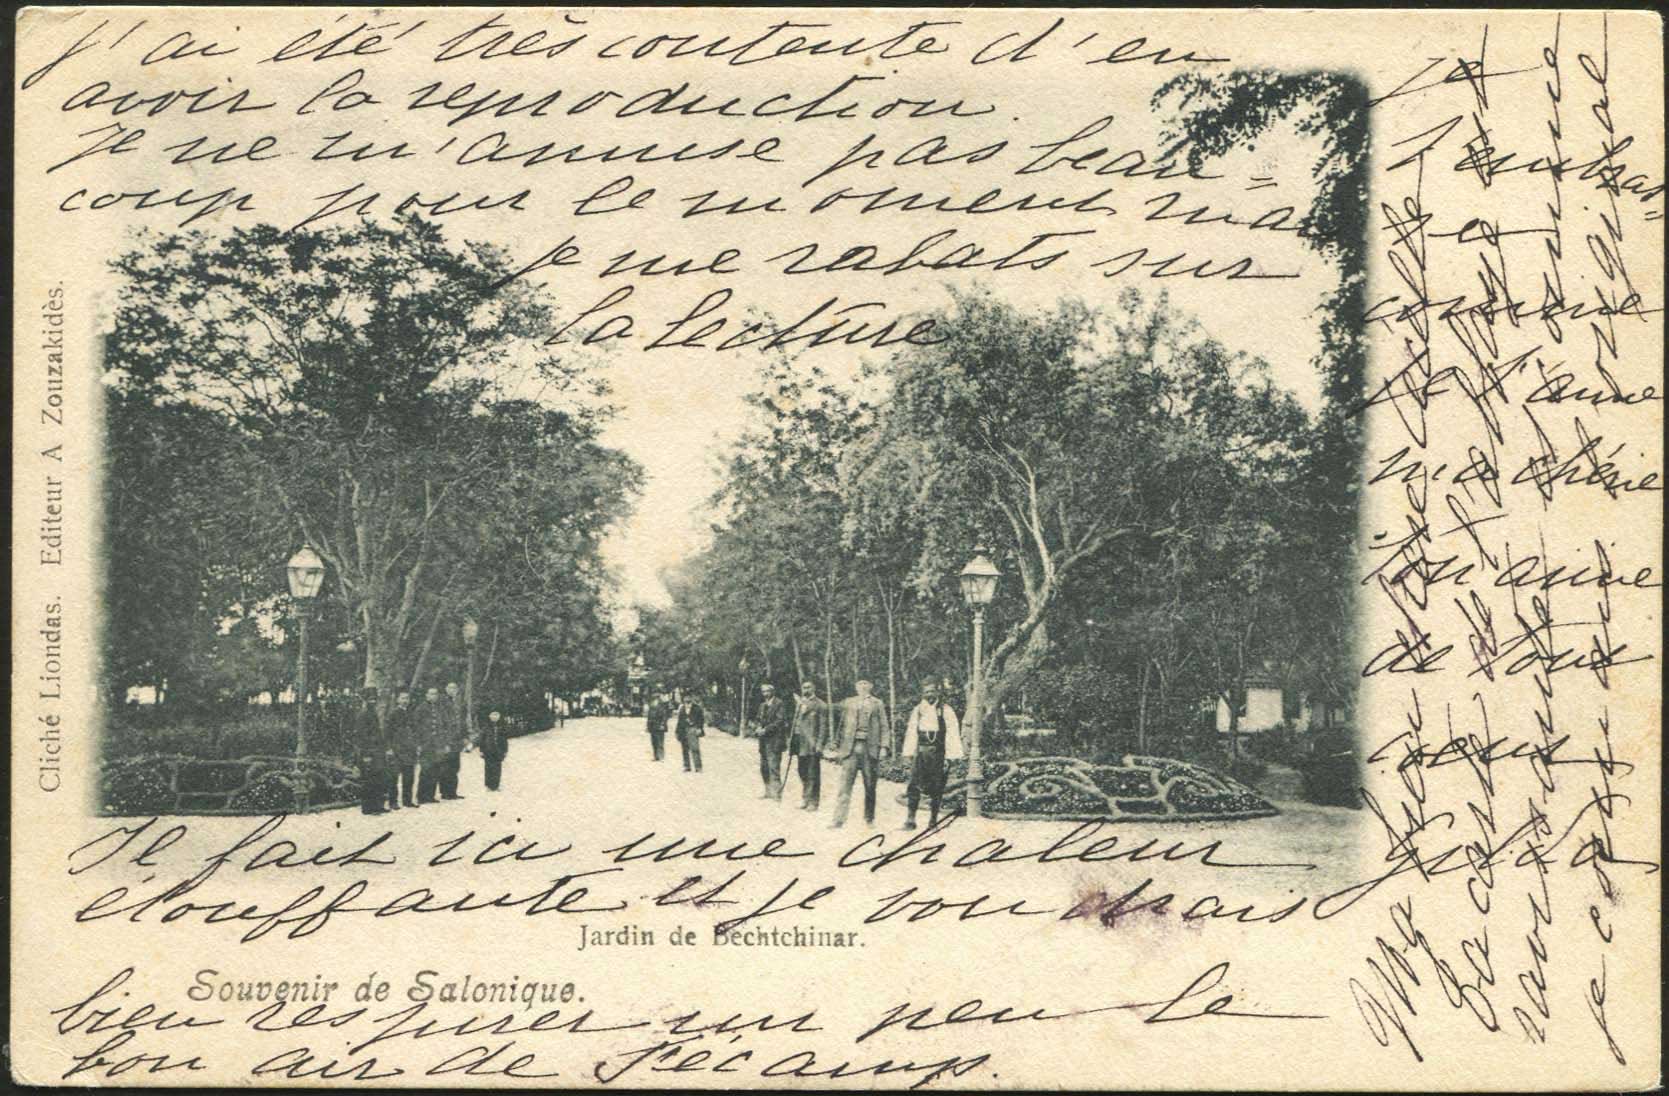 J'ai été très contente d'en
avoir la reproduction.
Je ne m'amuse pas beau=
coup pour le moment mais
je me rabats sur
la lecture
Il fait ici une chaleur
étouffante et je voudrais
bien respirer un peu le
bon air de Fécamp.
Je
t'embras=
comme
je t'aime
ma chérie
Ton amie
de tout
cœur
Ma bien
Ta carte de
je l'original
Cliché Liondas. Editeur A Zouzakidès.
Jardin de Bechtchinar.
Souvenir de Salonique.